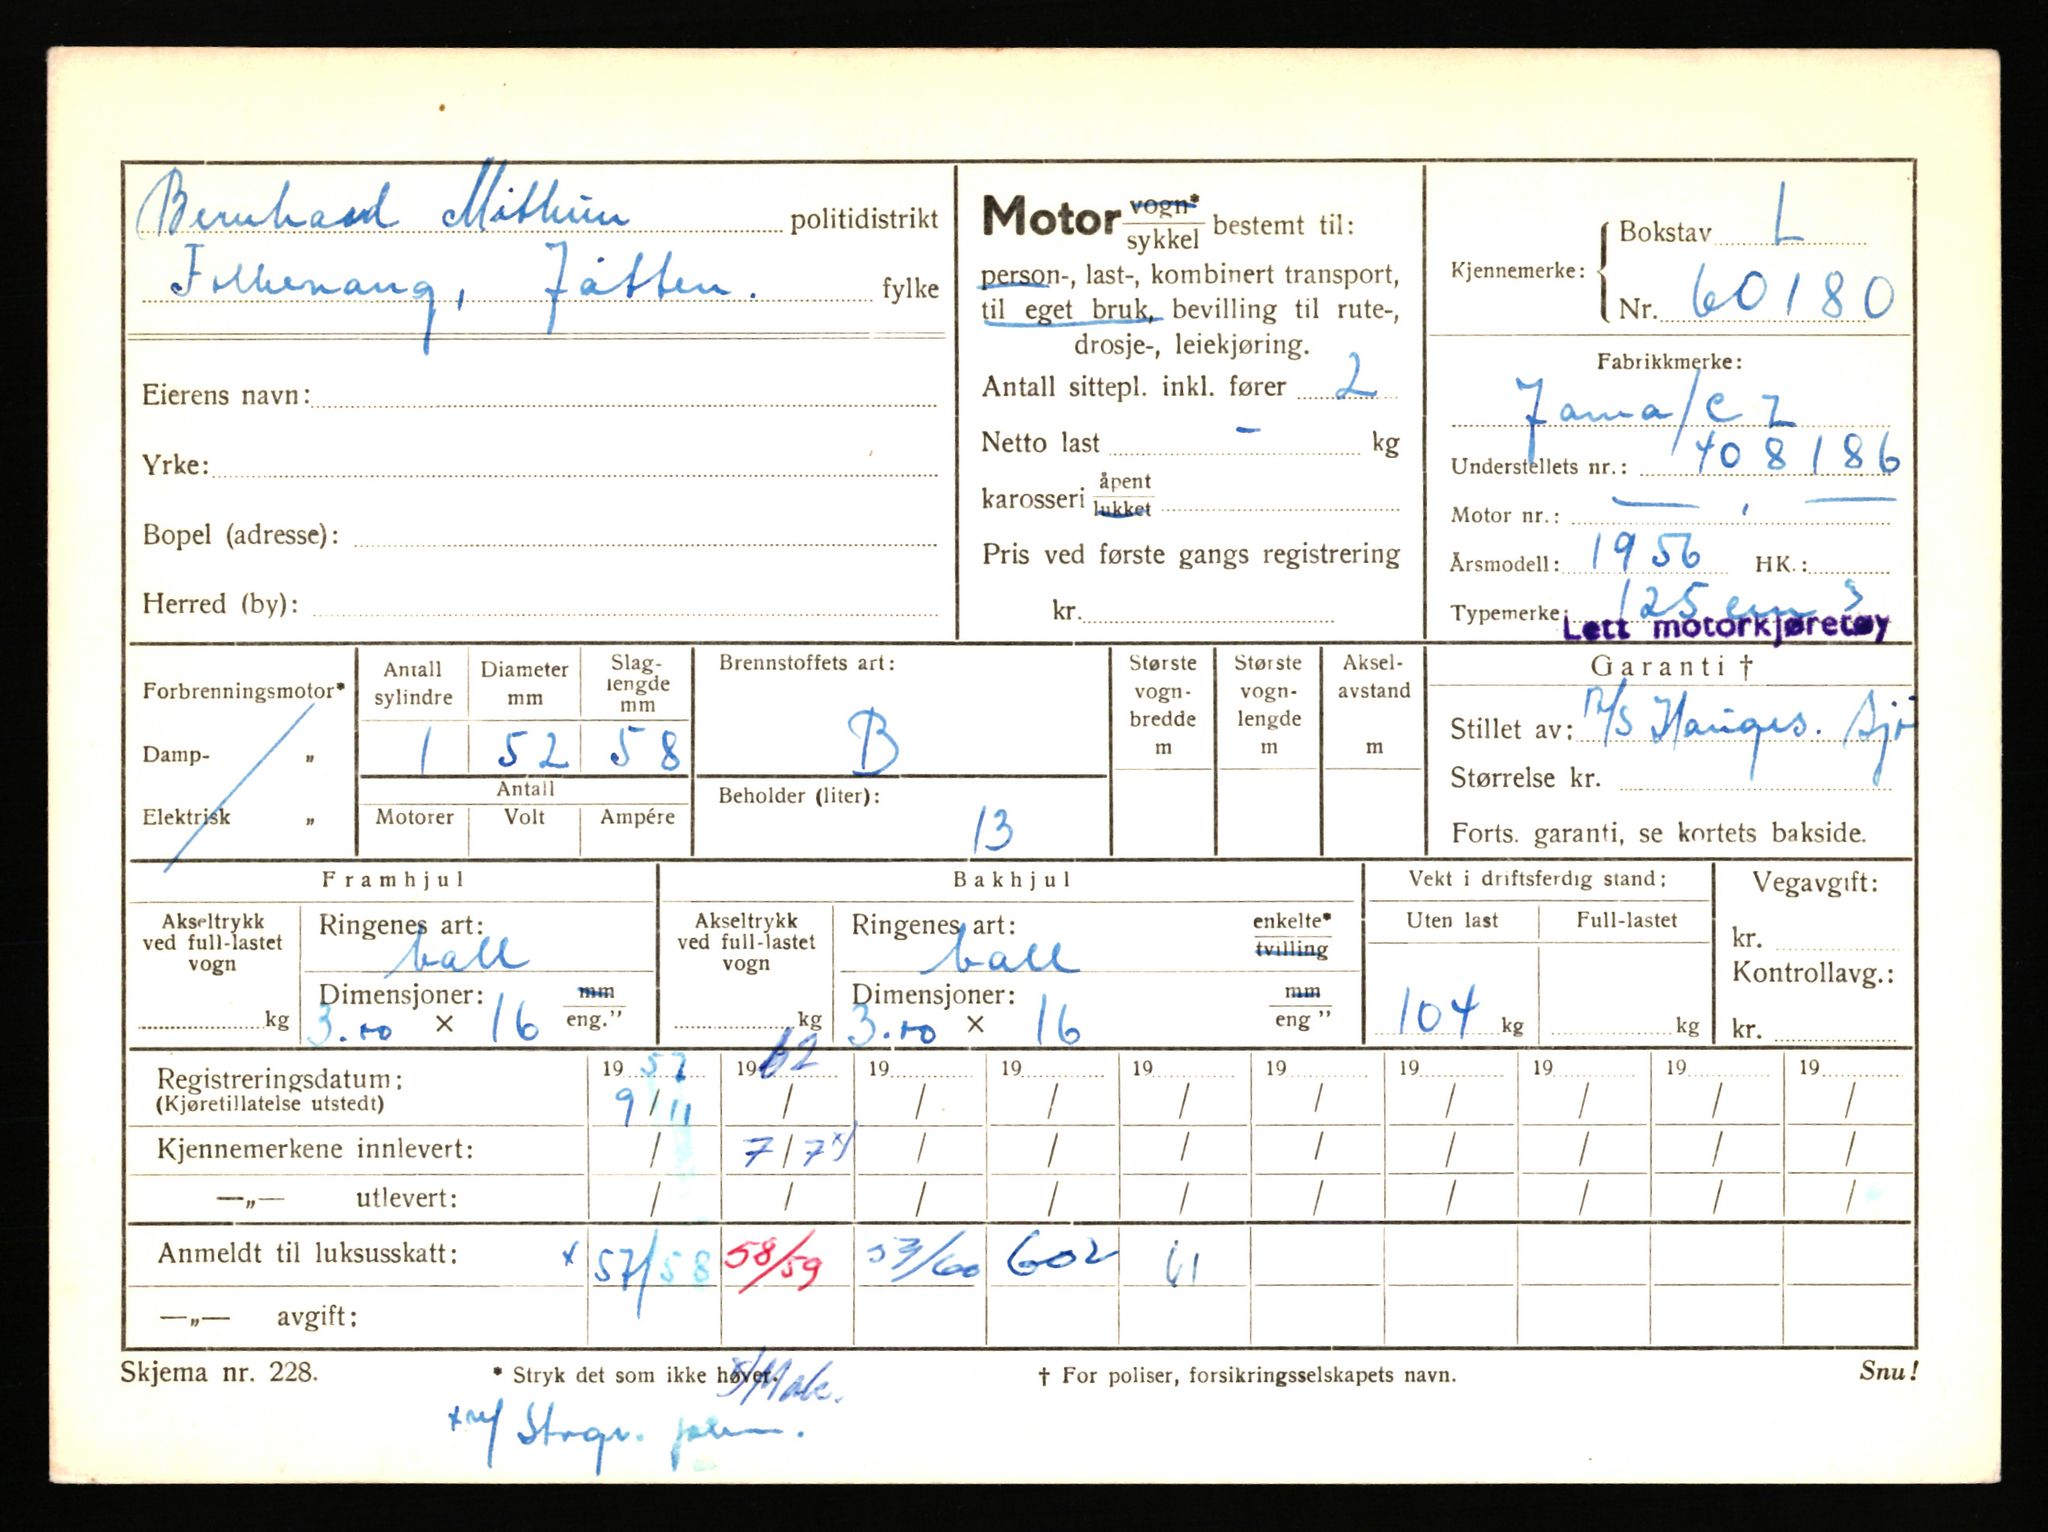 Bernhard Mithun politidistrikt
Jåtten. fylke
Eierens navn:
Yrke:
Bopel (adresse):
Herred (by):
Motor vogn*/sykkel bestemt til:
person-, last-, kombinert transport,
til eget bruk, bevilling til rute-,
drosje-, leiekjøring.
Antall sittepl. inkl. fører 2
Netto last - kg
karosseri åpent/lukket
Pris ved første gangs registrering
kr.
Kjennemerke: { Bokstav L
Nr. 60180
Fabrikkmerke:
Jawa/CZ
Understellets nr.: 408186
Motor nr.: —
Årsmodell: 1956 HK.:
Typemerke: 125 cm3
Lett motorkjøretøy
Forbrenningsmotor*
Damp- „
Elektrisk „
Antall sylindre 1
Diameter mm 52
Slaglengde mm 58
Antall
Motorer Volt Ampére
Brennstoffets art:
B
Beholder (liter):
13
Største vogn-bredde m
Største vogn-lengde m
Aksel-avstand m
Garanti †
Stillet av: A/S Hauges.
Størrelse kr.
Forts. garanti, se kortets bakside.
Framhjul
Akseltrykk ved full-lastet vogn kg
Ringenes art:
ball
Dimensjoner: mm/eng."
3.00 × 16
Bakhjul
Akseltrykk ved full-lastet vogn kg
Ringenes art: enkelte*/tvilling
ball
Dimensjoner: mm/eng "
3.00 × 16
Vekt i driftsferdig stand:
Uten last Full-lastet
104 kg kg
Vegavgift:
kr.
Kontrollavg.:
kr.
Registreringsdatum: 1957 1962 19 19 19 19 19 19 19 19
(Kjøretillatelse utstedt) 9/11 / / / / / / / / /
Kjennemerkene innlevert: / 7/7 x) / / / / / / / /
—„— utlevert: / / / / / / / / / /
Anmeldt til luksusskatt: x 57/58 58/59 59/60 602 61
—„— avgift:
Skjema nr. 228. * Stryk det som ikke høver. † For poliser, forsikringsselskapets navn. Snu!